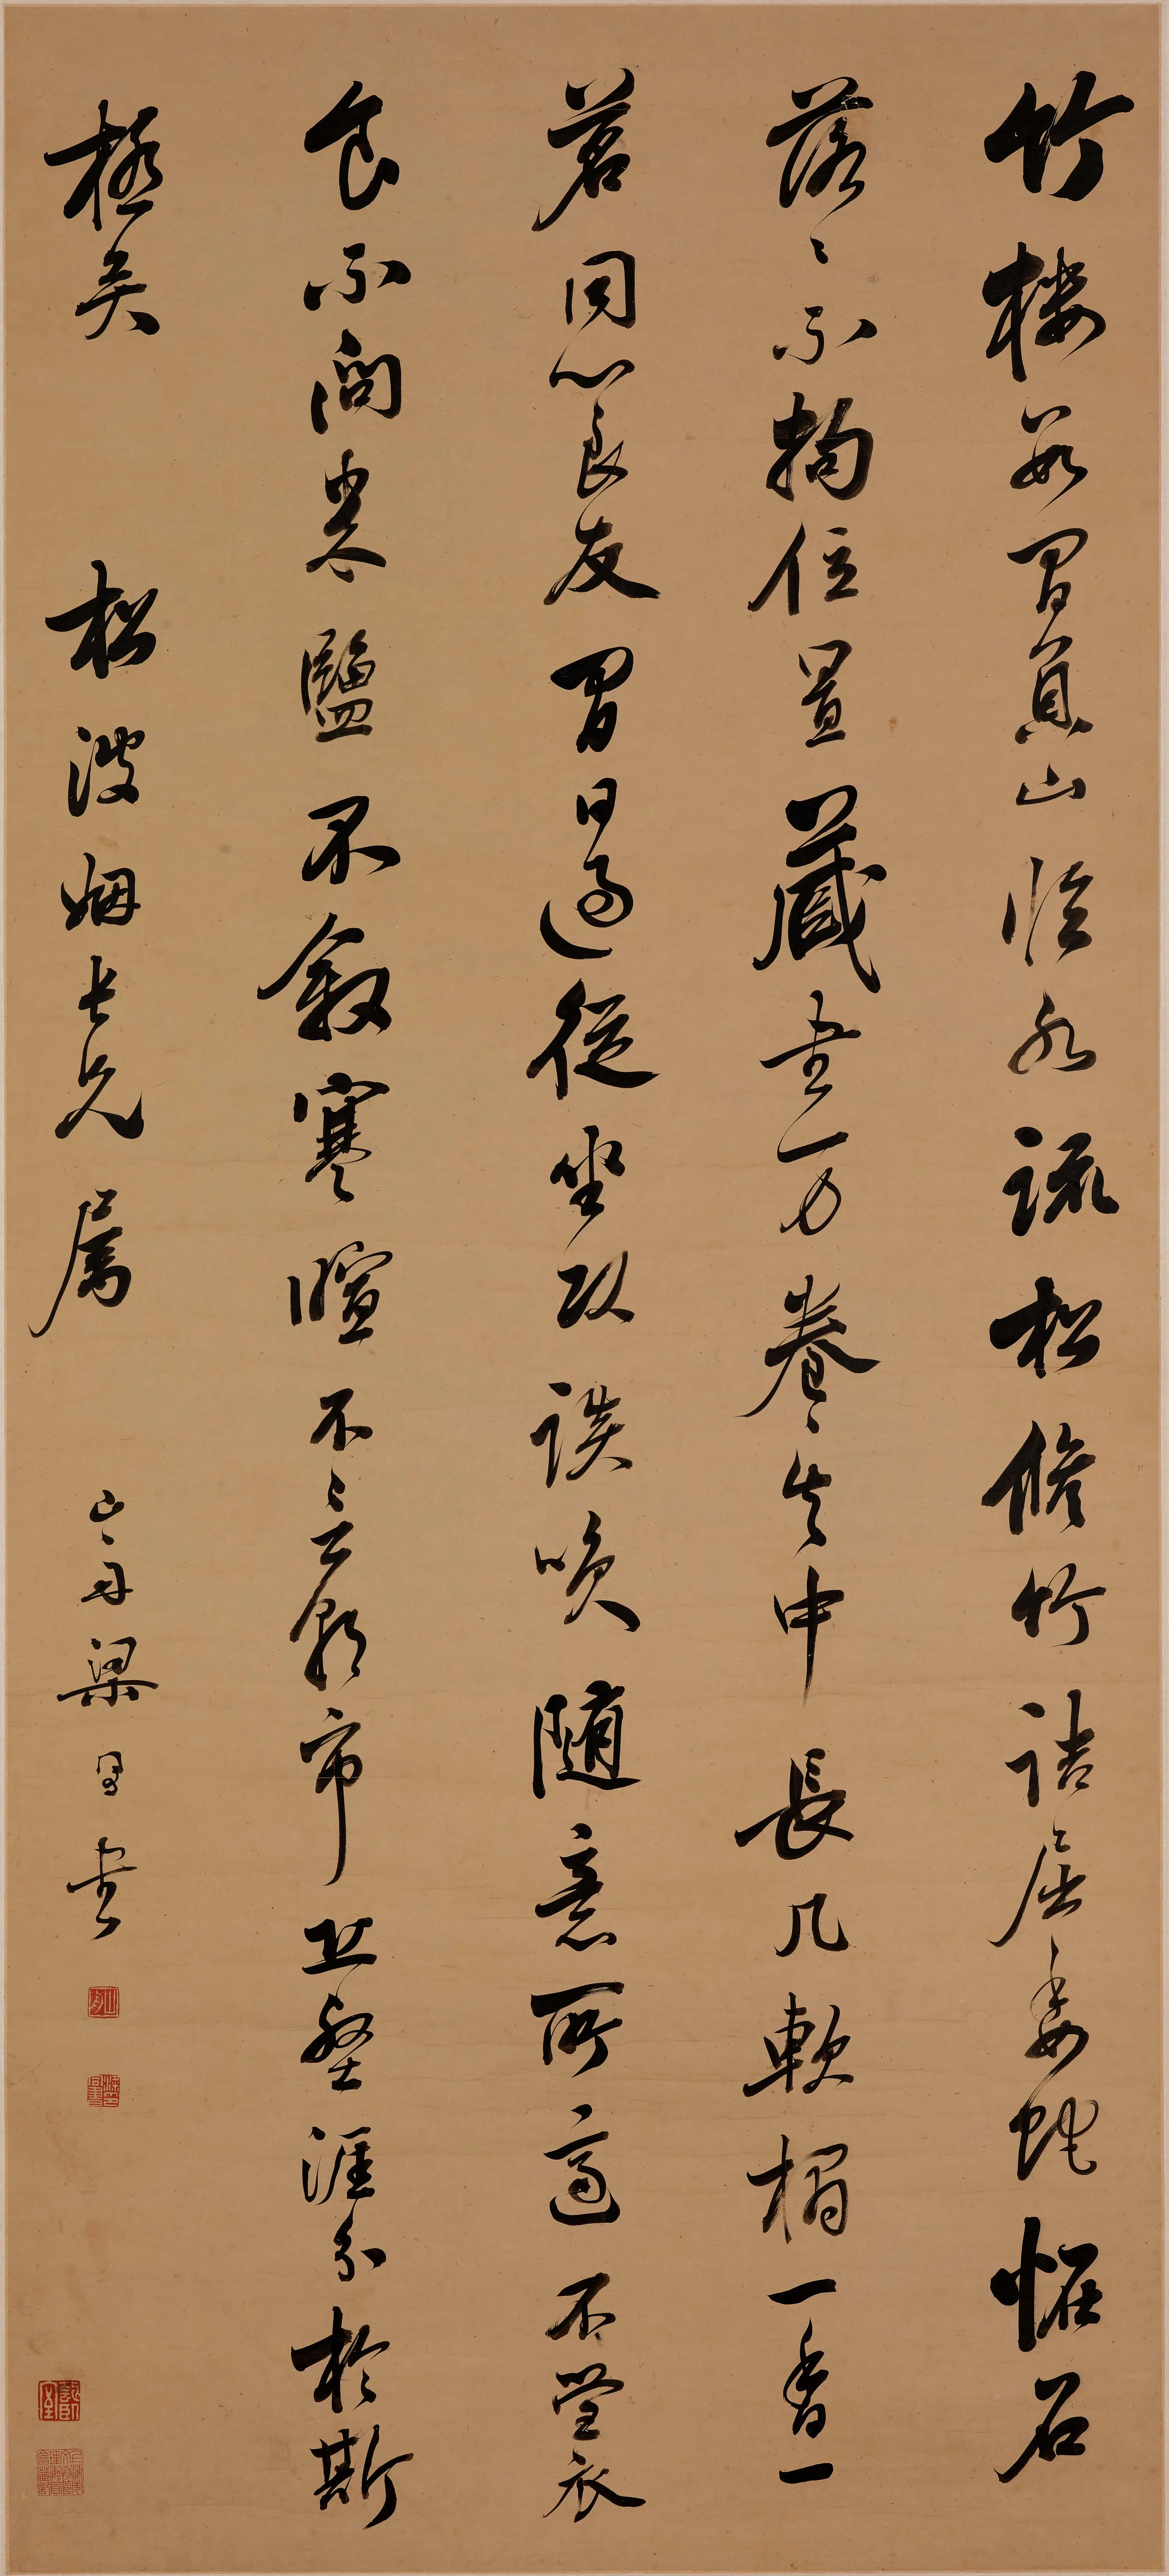 竹樓數間負山臨水疏松脩竹詰屈委蛇恠石
落〻不拘位置藏書万卷其中長几軟榻一香一
茗同心良友閒日過從坐臥談笑隨意所適不營衣
食不問米鹽不敘寒暄不言朝市丘壑涯分於斯
極矣 松波姻長兄屬 山舟梁同書